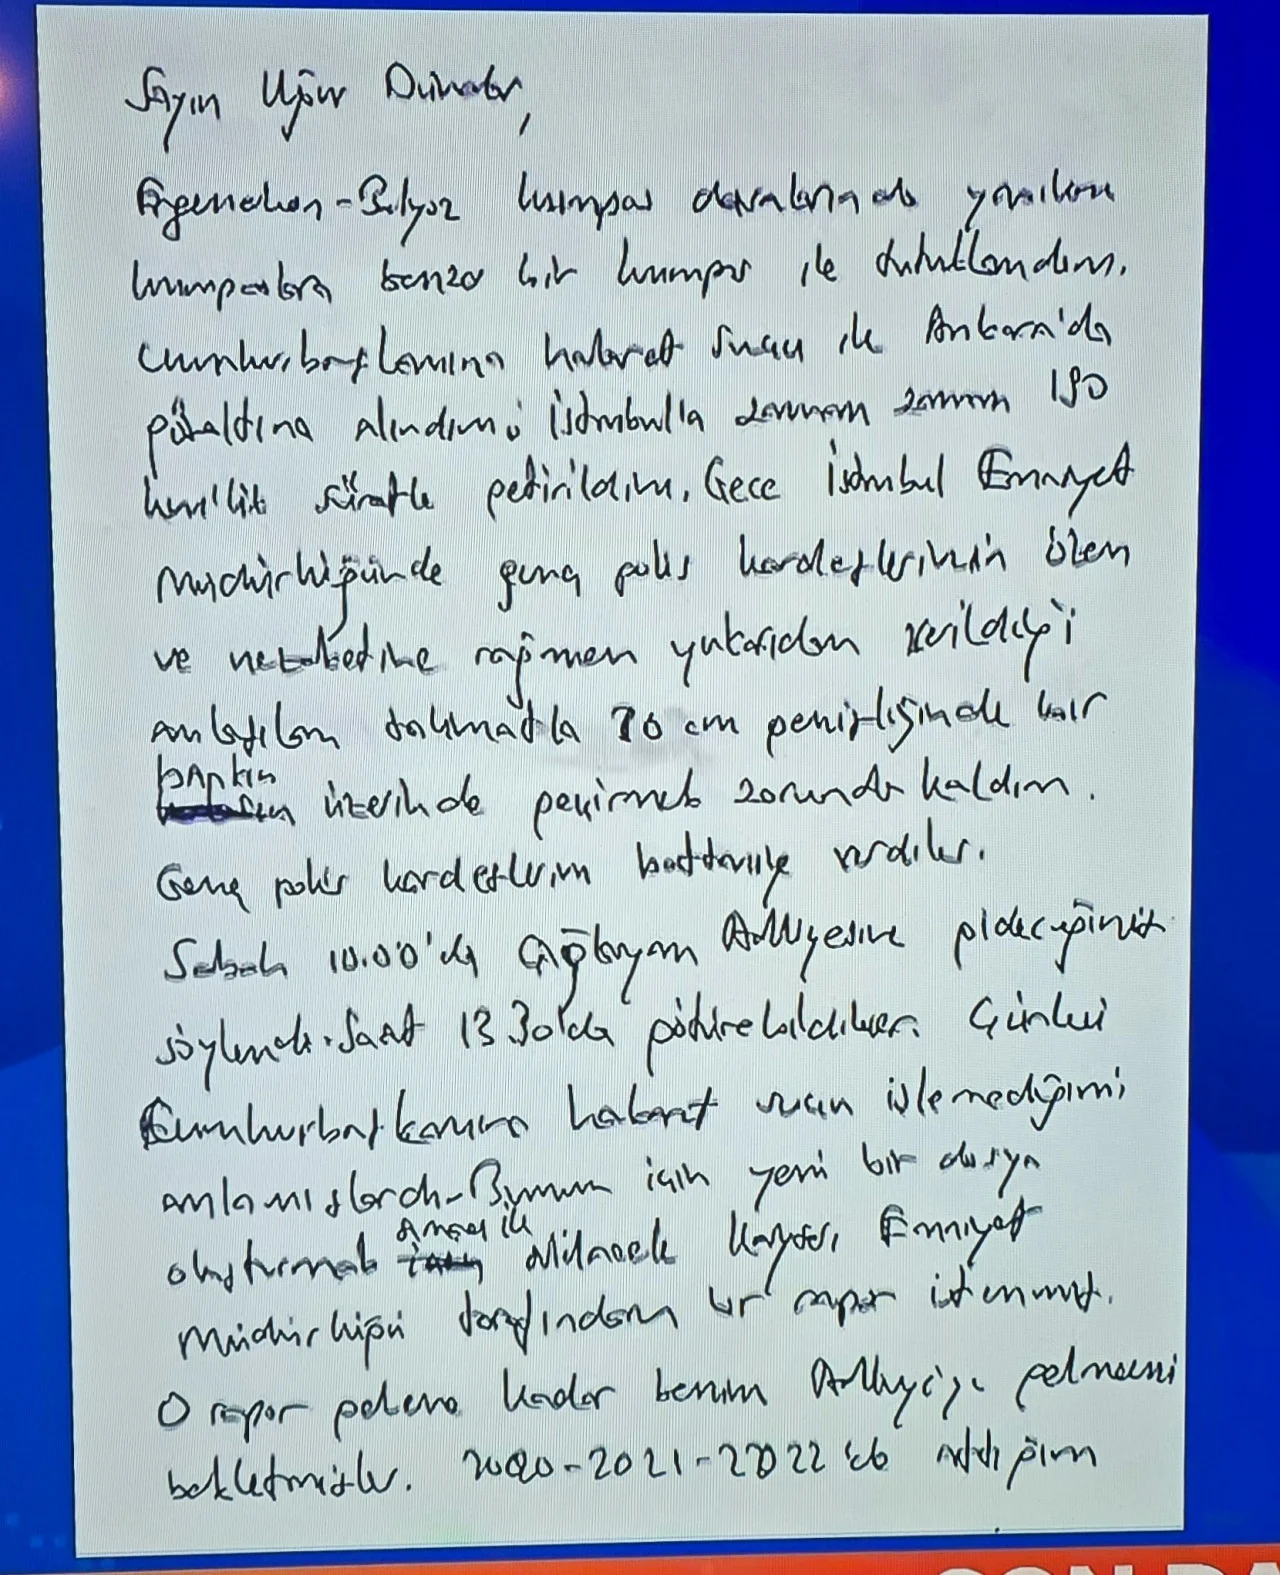 Sayın Uğur Dündar,
Ergenekon-Balyoz kumpas davalarında yapılan
kumpaslara benzer bir kumpas ile tutuklandım.
Cumhurbaşkanına hakaret suçu ile Ankara'da
gözaltına alındım; İstanbulla zaman zaman 190
km'lik süratle getirildim. Gece İstanbul Emniyet
Müdürlüğünde genç polis kardeşlerimin özen
ve nezaketine rağmen yukarıdan verildiği
anlaşılan talimatla 70 cm genişliğinde bir
bankın üzerinde geçirmek zorunda kaldım.
Genç polis kardeşlerim battaniye verdiler.
Sabah 10.00'da Çağlayan Adliyesine gideceğimiz
söylendi. Saat 13.30'da götürebildiler. Çünkü
Cumhurbaşkanına hakaret suçu işlemediğimi
anlamışlardı. Bunun için yeni bir dosya
oluşturmak amacı ile Kayseri Emniyet
Müdürlüğü tarafından bir rapor istenmiş.
O rapor gelene kadar benim Adliyeye gelmemi
bekletmişler. 2020-2021-2022'de attığım
SON DA